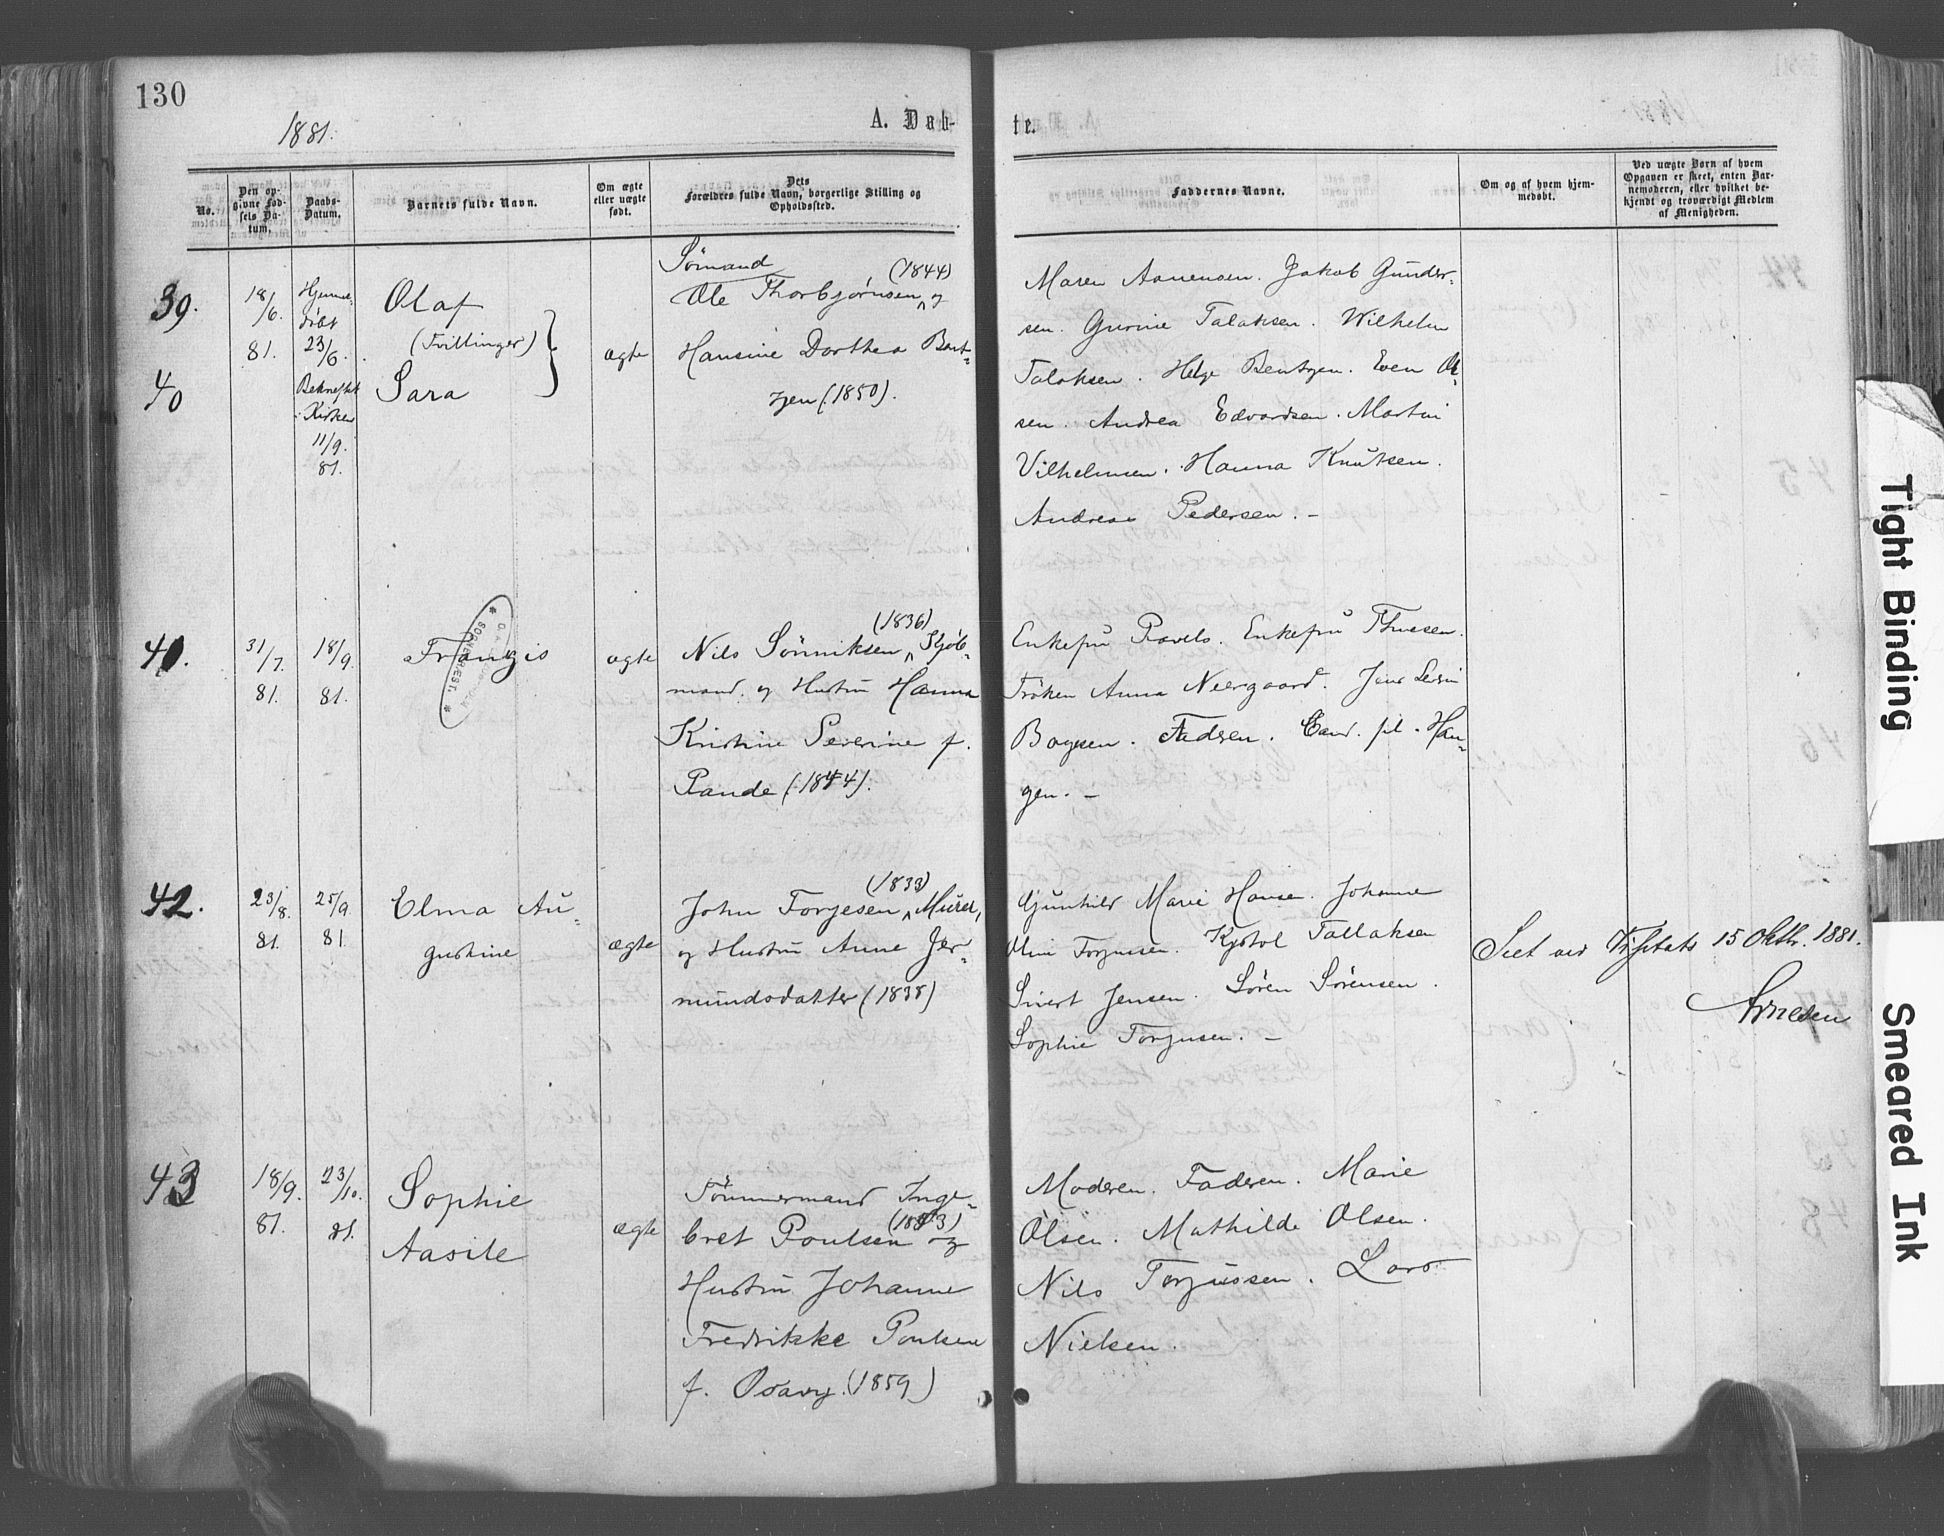 130
1881.
A. Døb-
te.
No.
Den op-
givne Fød-
sels Da-
tum.
Daabs-
Datum.
Barnets fulde Navn.
Om ægte
eller uægte
født.
Dets
Forældres fulde Navn, borgerlige Stilling og
Opholdssted.
Faddernes Navne.
Om og af hvem hjem-
medøbt.
Ved uægte Børn af hvem
Opgaven er skeet, enten Bar-
nemoderen, eller hvilket be-
kjendt og troværdigt Medlem
af Menigheden.
39.
18/6.
81.
Hjemme-
døbt
23/6.
Bekræftet
i Kirken
11/9.
81.
Olaf
(Tvillinger)
40
Sara
ægte
Sømand
(1844)
Ole Thorbjørnsen ^ og
Hansine Dorthea Bent-
zen (1850).
Maren Aanensen. Jakob Gunder-
sen. Gurine Talaksen. Wilhelm
Talaksen. Helge Bentzen. Even Ol-
sen. Andrea Edvardsen. Martin
Vilhelmsen. Hanna Knutsen.
Andreas Pedersen. –
41.
31/7.
81.
18/9.
81.
Frantzis
ægte
(1836)
Nils Sønniksen ^ Kjøb-
mand. og Hustru Hanna
Kristine Severine f.
Rande (1844).
Enkefru Povels. Enkefru Thuesen.
Frøken Anna Neergaard. Jens
Boysen. Faderen. Cand. fil. Hau-
gen. –
42.
23/8.
81.
25/9
81.
Elma Au-
gustine
ægte
(1833)
John Torjesen ^ Murer,
og Hustru Anne Jer-
mundsdatter (1838)
Gunhild Marie Hansen. Johanne
Oline Torjusen. Kjstol Tallaksen
Sivert Jensen. Søren Sørensen.
Sophie Torjusen. –
Seet ved Visitats 15 Oktbr. 1881.
43
18/9.
81.
23/10.
81.
Sophie
Aasile
ægte
Tømmermand Inge-
bret Poulsen (1853) og
Hustru Johanne
Fredrikke Poulsen
f. Osavy. (1859)
Moderen. Faderen. Marie
Olsen. Mathilde Olsen.
Nils Torjussen. Lars
Nielsen.
Tight Binding
Smeared Ink